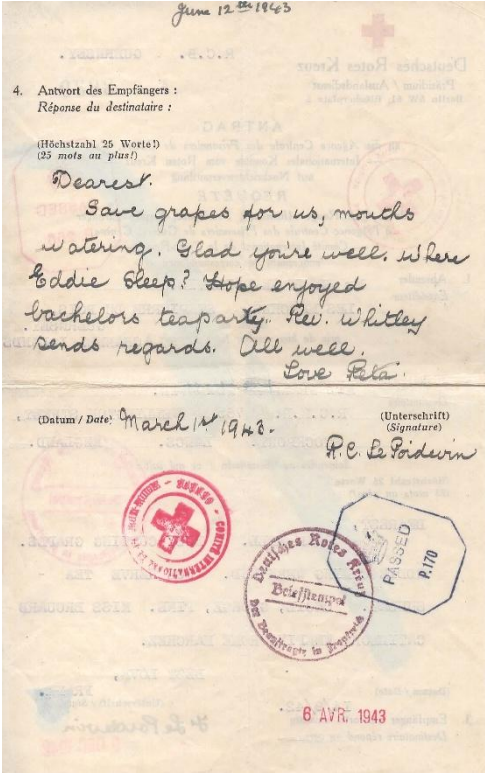 June 12th 1943
4. Antwort des Empfängers :
Réponse du destinataire :
(Höchstzahl 25 Worte!)
(25 mots au plus!)
Dearest.
Save grapes for us, mouths
watering. Glad you're well. Where
Eddie Sleep? Hope enjoyed
bachelors teaparty. Rev. Whitley
sends regards. All well.
Love Reta.
(Datum / Date) March 1st 1943.
(Unterschrift)
(Signature)
R.C. Le Poidevin
COMITÉ INTERNATIONAL
GENÈVE
Deutsches Rotes Kreuz
Briefstempel
Der Beauftragte in
PASSED
P.170
6 AVR. 1943